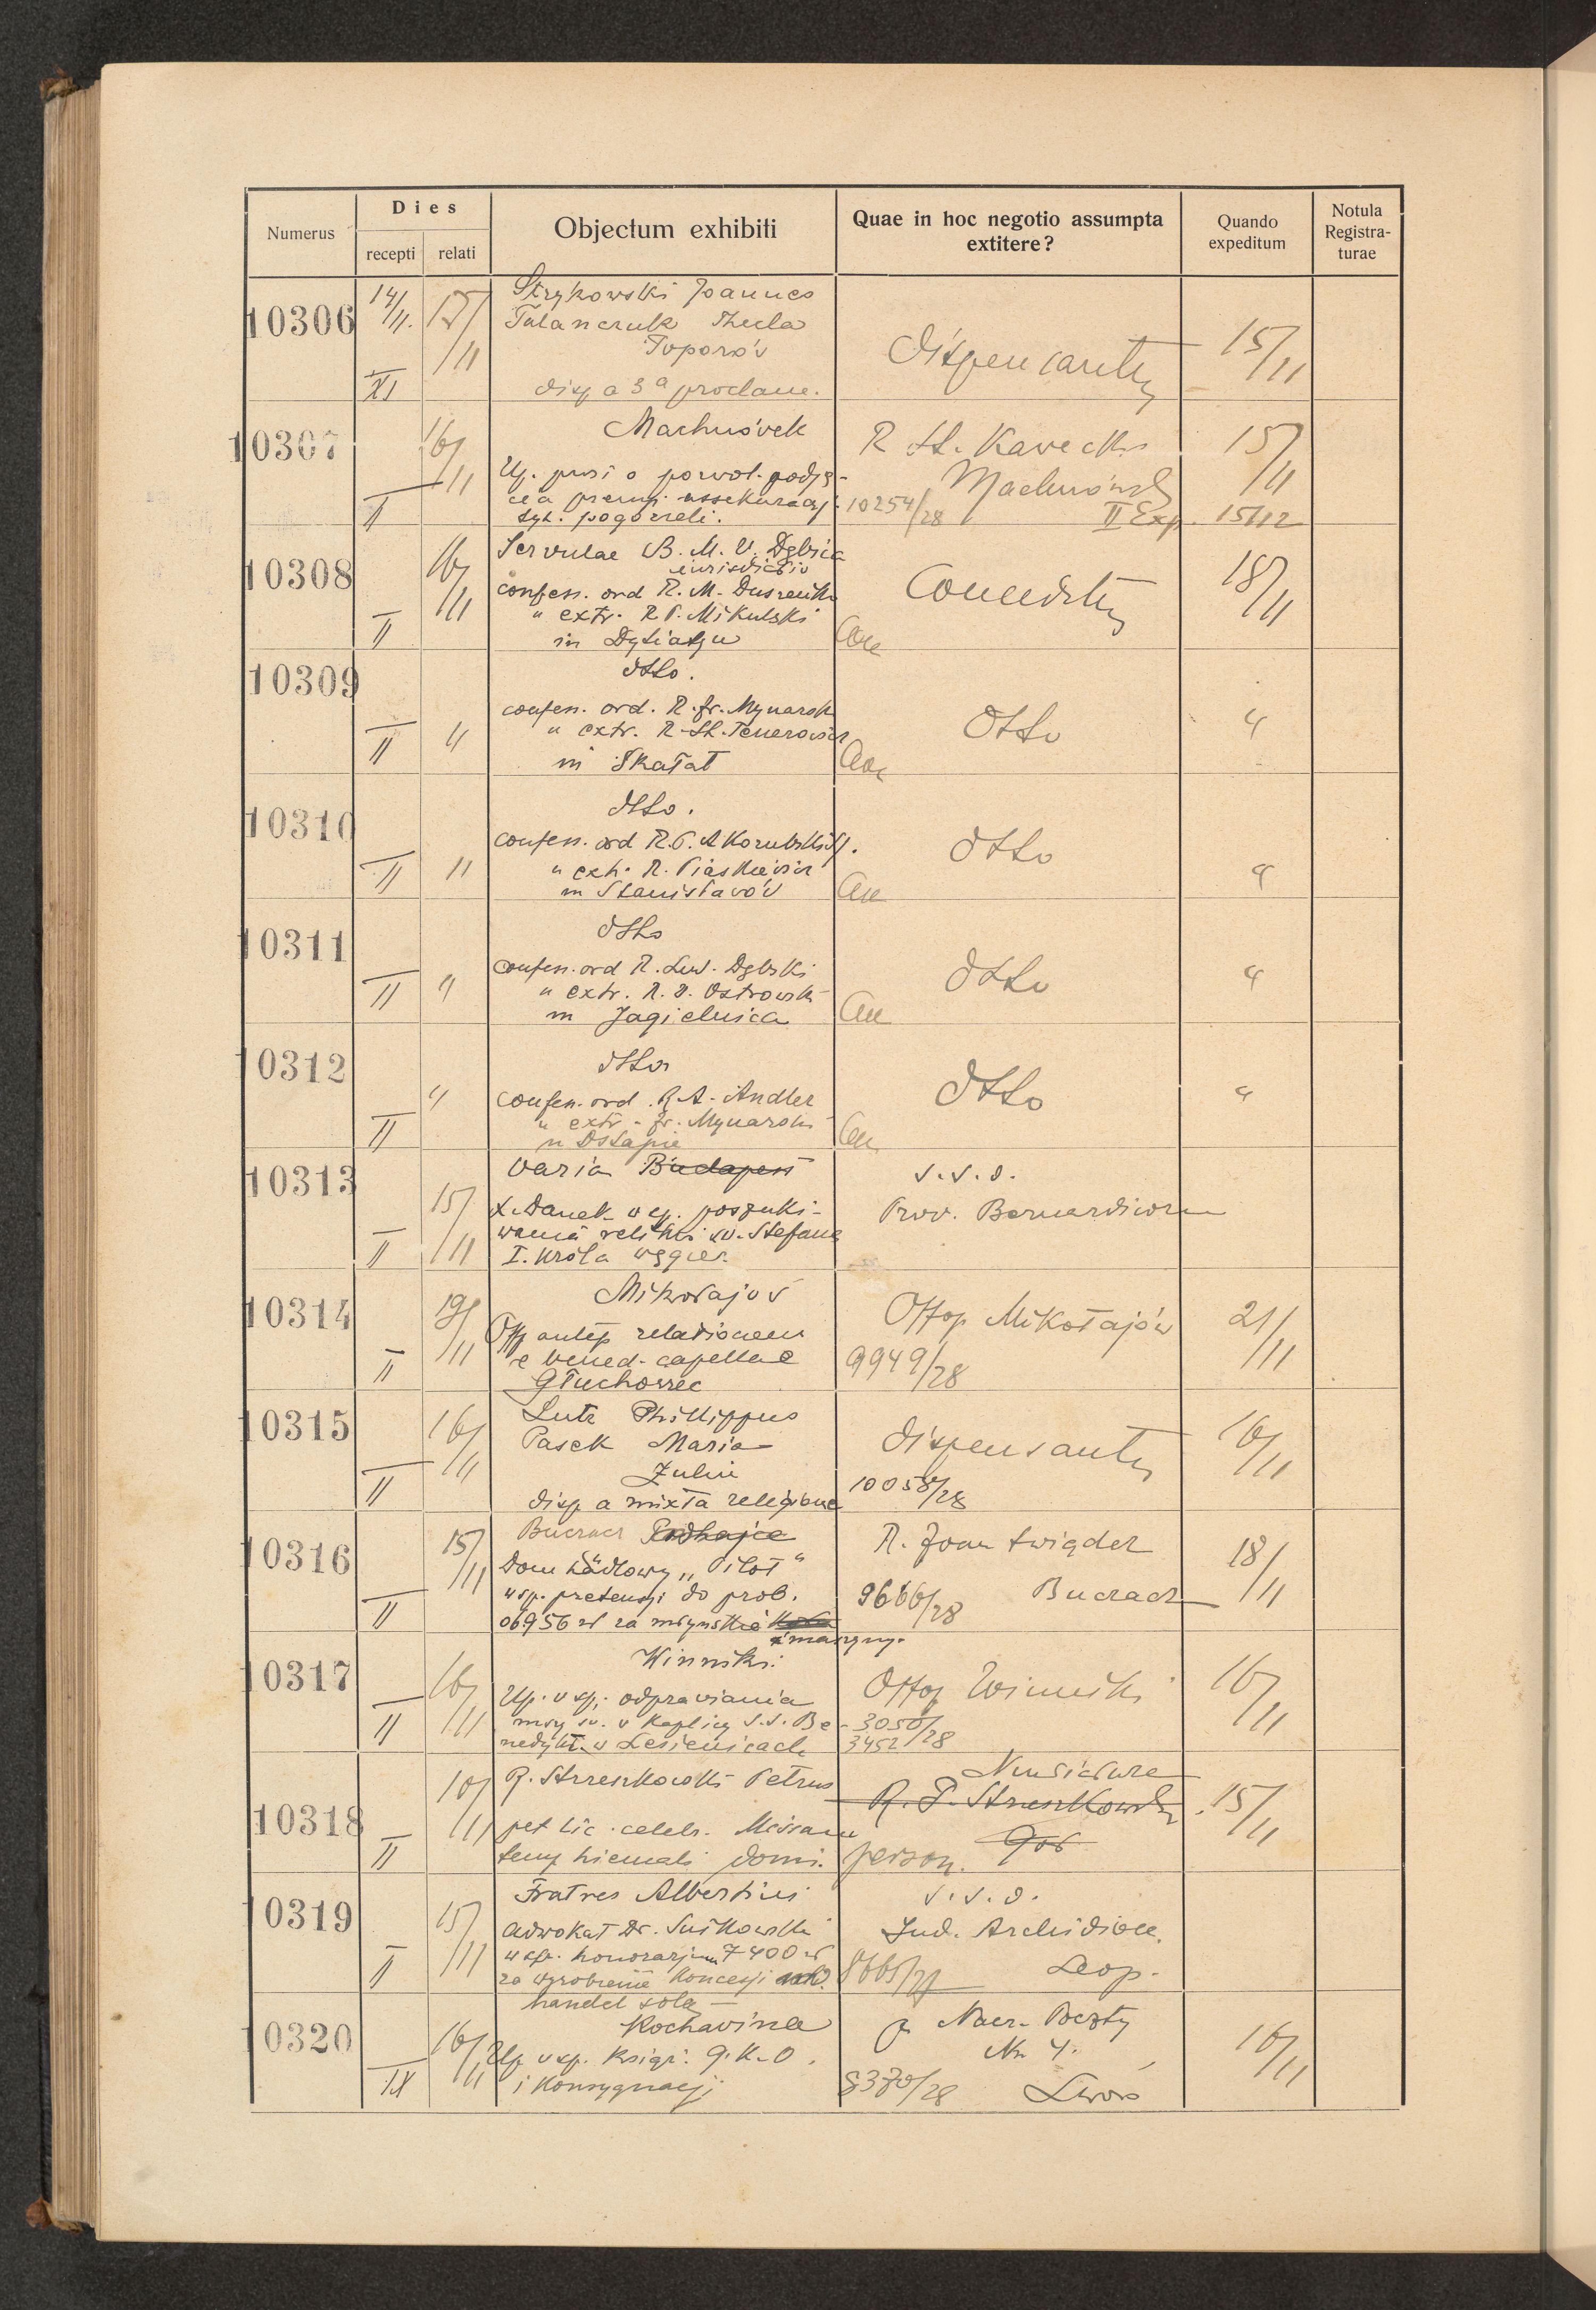 Numerus
Dies
recepti
relati
Objectum exhibiti
Quae in hoc negotio assumpta extitere?
Quando expeditum
Notula Registra-turae
10306
14/11.
15/11
XI
Strykowski Joannes
Thecla
Toporów
disp a 3ª proclam.
dispensantur
15/11
10307
16/11
II
Machnówek
Up. prosi o pozwol. podję-
cia premji assekuracyj.
pogorzeli.
R St. Kawecki
Machnówek
10254/28
II Exp.
15/11
15/12
10308
16/11
II
Servulae B. M. V. Dębica
iurisdictio
confess. ord R. M. Duszeńko
" extr. R P. Mikulski
in Dytiatyn
Conceditur
18/11
10309
II
"
dtto.
confess. ord. R. Fr. Mynarski
" extr. R. St.
in Skałat
dtto
"
10310
II
11
dtto.
confess. ord R. P. A
" extr. R. Piaskiewicz
in Stanisławów
dtto
"
10311
II
"
dtto
confess. ord R. Lud. Dębski
" extr. R. J. Ostrowski
in Jagielnica
dtto
"
10312
II
"
dtto
confess. ord. R. A. Andler
" extr. Fr. Mynarski
in Ostapie
dtto
"
10313
15/11
II
Varia Budapest
X. Danek w sp. poszuki-
wania relikwi św. Stefana
I. króla węgier.
v.s.d.
Prov. Bernardinorum
10314
19/11
II
Mikołajów
Off antep relationem
e bened. capellae
Głuchowiec
Offop Mikołajów
9949/28
21/11
10315
16/11
II
Lutz Phillippus
Pasek Maria
disp a mixta religione
dispensantur
10058/28
16/11
10316
15/11
II
Buczacz Podhajce
Dom hadlowy „Pilot"
w sp. pretensji do prob.
o 6956 zł za młyńskie
maszyny.
R. Joan
9666/28
Buczacz
18/11
10317
16/11
II
Winniki
Up. w sp. odprawiania
mszy św. w kaplicy S.S. Be-
nedykt. w Lesienicach
Offop Winniki
3050/28
3452/28
16/11
10318
10/11
II
R. Strzeszkowski Petrus
pet lic. celebr. Missam
temp hiemali domi.
Nunciature
R. P. Strzeszkowski
person.
15/11
10319
15/11
II
Fratres Albertini
adwokat Dr.
w sp. honorarjum 7400 zł
za wyrobienie koncesji
handel solą
v.s.d.
Jud. Archidioec.
Leop.
10320
16/11
IX
Kochawina
Up w sp. książ. P.K.O.
i konsygnacji
Nacz. Poczty
Nr 4.
8370/28
Lwów
16/11